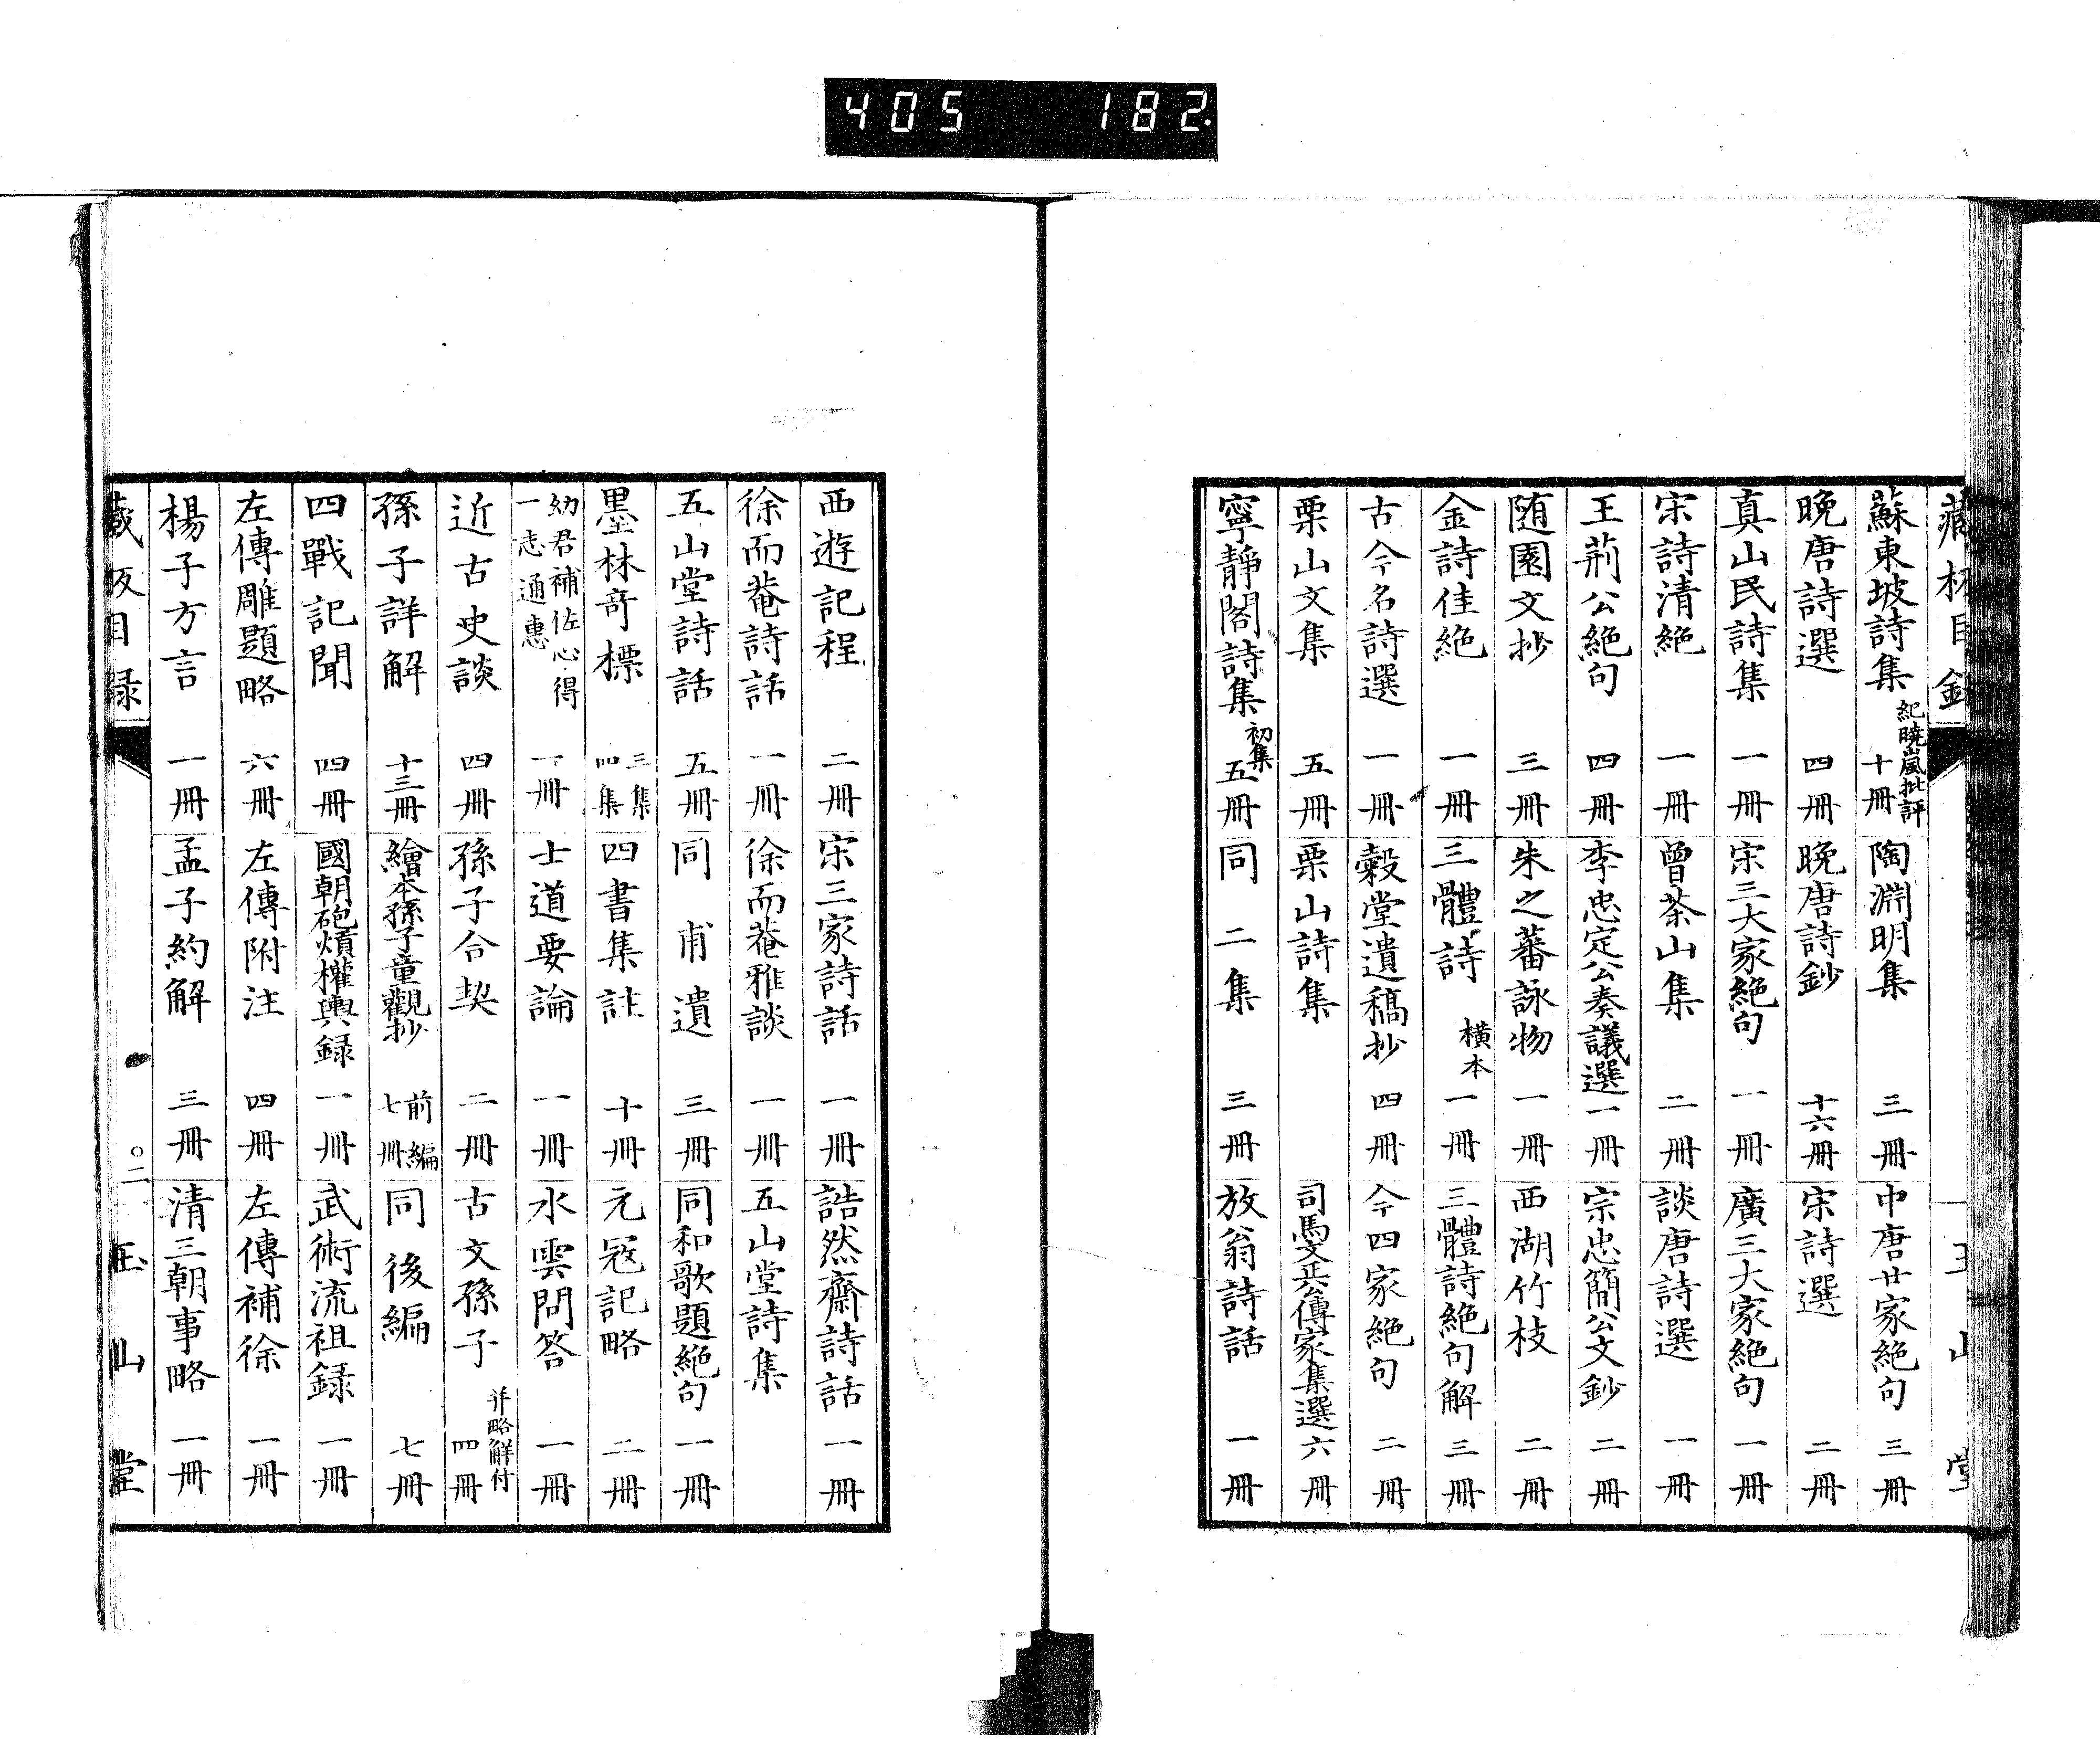 405 182
藏板目錄 玉山堂
蘇東坡詩集 紀曉嵐批評 十冊 陶淵明集 三冊 中唐廿家絶句 三冊
晩唐詩選 四冊 晩唐詩鈔 十六冊 宋詩選 二冊
真山民詩集 一冊 宋三大家絶句 一冊 廣三大家絶句 一冊
宋詩清絶 一冊 曾茶山集 二冊 談唐詩選 一冊
王荊公絶句 四冊 李忠定公奏議選 一冊 宗忠簡公文鈔 二冊
随園文抄 三冊 朱之蕃詠物 一冊 西湖竹枝 二冊
金詩佳絶 一冊 三體詩 横本 一冊 三體詩絶句解 三冊
古今名詩選 一冊 穀堂遺稿抄 四冊 今四家絶句 二冊
栗山文集 五冊 栗山詩集 司馬文正公傳家集選 六冊
寧靜閣詩集 初集 五冊 同 二集 三冊 放翁詩話 一冊
西遊記程 二冊 宋三家詩話 一冊 誥然齋詩話 一冊
徐而菴詩話 一冊 徐而菴雅談 一冊 五山堂詩集
五山堂詩話 五冊 同 甫遺 三冊 同和歌題絶句 一冊
墨林竒標 三集 四集 四書集註 十冊 元冦記略 二冊
幼君補佐心得 一志通惠 一冊 士道要論 一冊 水雲問答 一冊
近古史談 四冊 孫子合契 二冊 古文孫子 并略解付 四冊
孫子詳解 十三冊 繪本孫子童觀抄 前編 七冊 同 後編 七冊
四戰記聞 四冊 國朝砲熕權輿録 一冊 武術流祖録 一冊
左傳雕題略 六冊 左傳附注 四冊 左傳補徐 一冊
楊子方言 一冊 孟子約解 三冊 清三朝事略 一冊
藏板目録 ○二 玉山堂